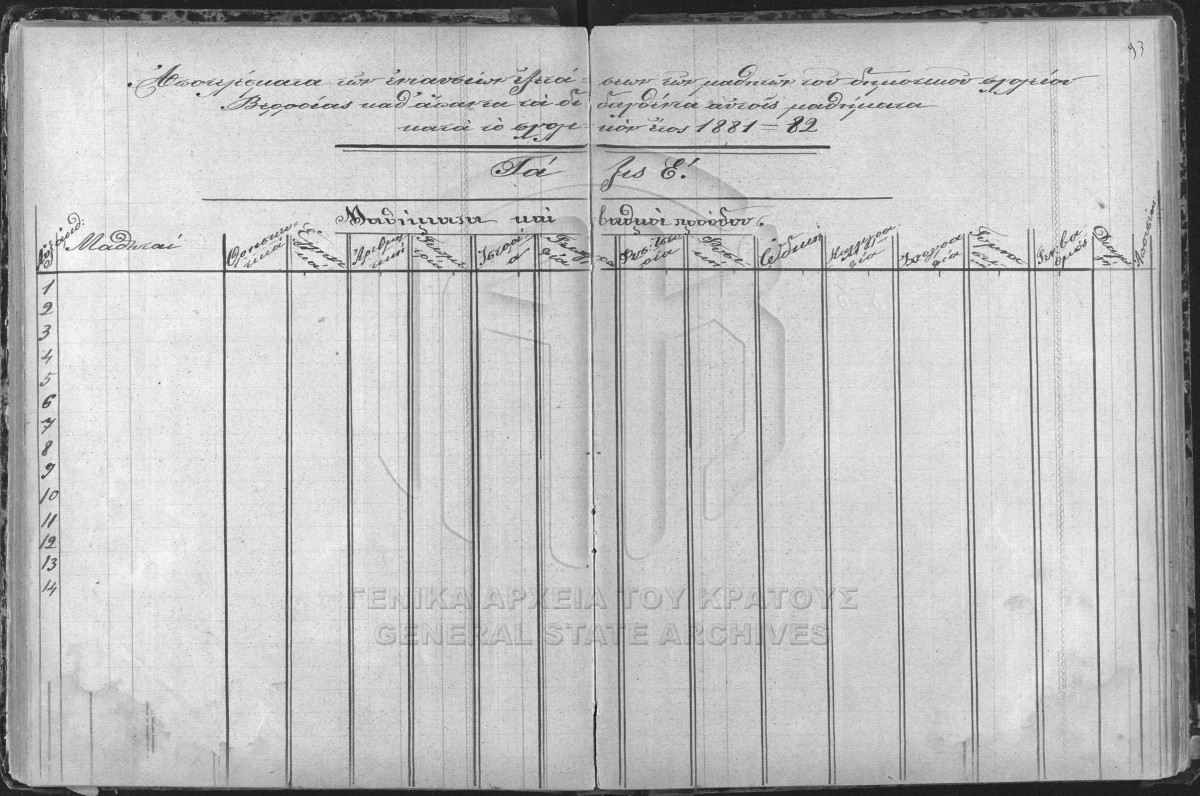 93
Ἀποτελέσματα τῶν ἐνιαυσίων ἐξετάσεων τῶν μαθητῶν τοῦ δημοτικοῦ σχολείου
Βερροίας καθ' ἅπαντα τὰ διδαχθέντα αὐτοῖς μαθήματα
κατὰ τὸ σχολικὸν ἔτος 1881=82
Τάξις Ε!
Μαθήματα καὶ βαθμοὶ προόδου
ἀριθ: Μαθηταί Θρησκευτικά Ἑλληνικά Ἀριθμητική Γεωμετρία Ἱστορία Γεωγραφία Φυσ: Ἱστορία Φυσική ᾨδική Καλλιγραφία Ἰχνογραφία Γυμναστική
1
2
3
4
5
6
7
8
9
10
11
12
13
14
ΓΕΝΙΚΑ ΑΡΧΕΙΑ ΤΟΥ ΚΡΑΤΟΥΣ
GENERAL STATE ARCHIVES